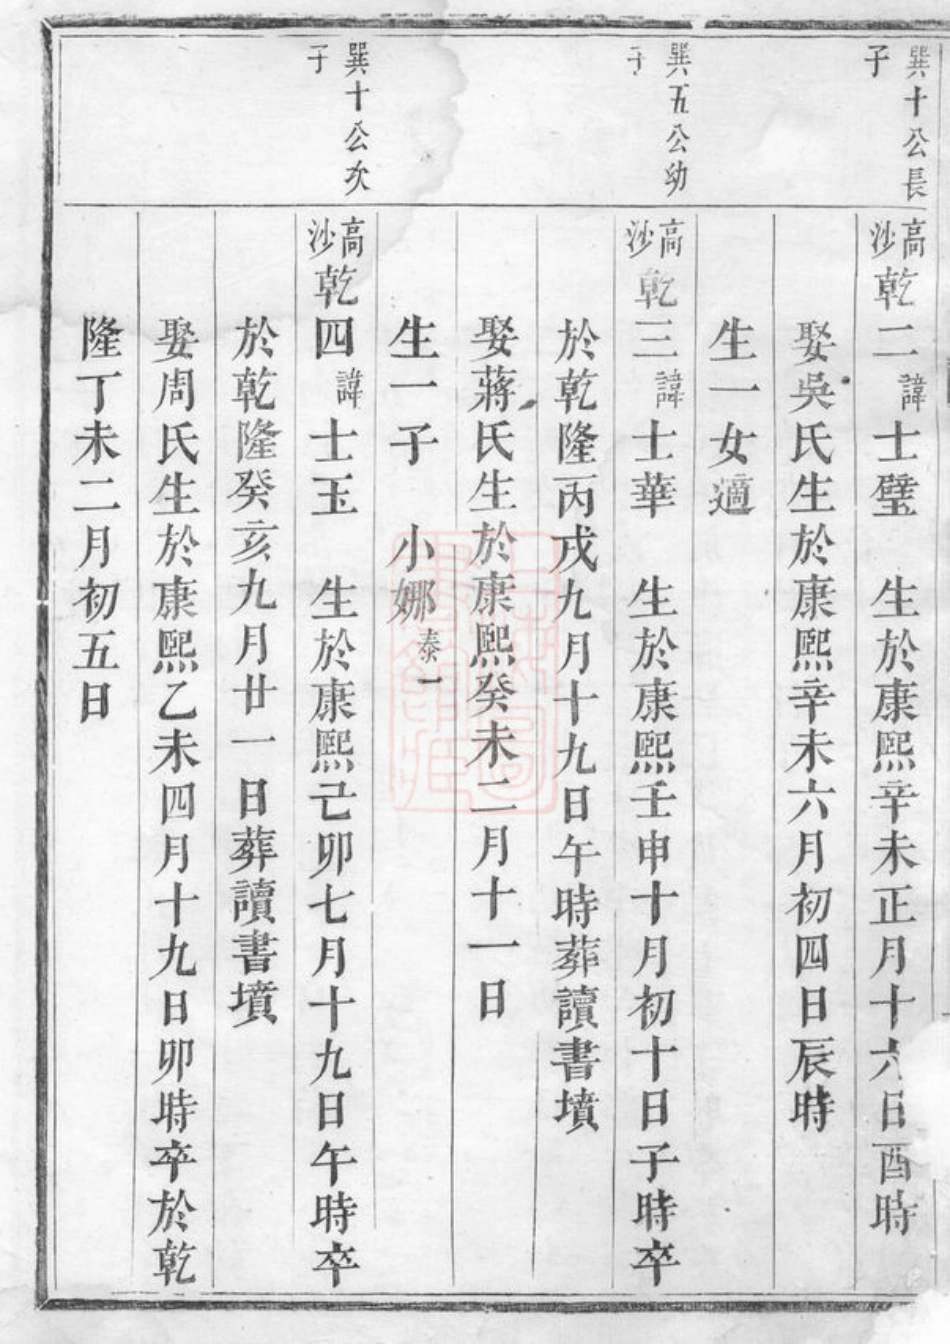 巽十公長
子
高沙乾二諱士璧　生於康熙辛未正月十六日酉時
娶吳氏生於康熙辛未六月初四日辰時
生一女適
巽五公幼
子
高沙乾三諱士華　生於康熙壬申十月初十日子時卒
於乾隆丙戌九月十九日午時葬讀書墳
娶蔣氏生於康熙癸未二月十一日
生一子　小娜泰一
巽十公次
子
高沙乾四諱士玉　生於康熙己卯七月十九日午時卒
於乾隆癸亥九月廿一日葬讀書墳
娶周氏生於康熙乙未四月十九日卯時卒於乾
隆丁未二月初五日